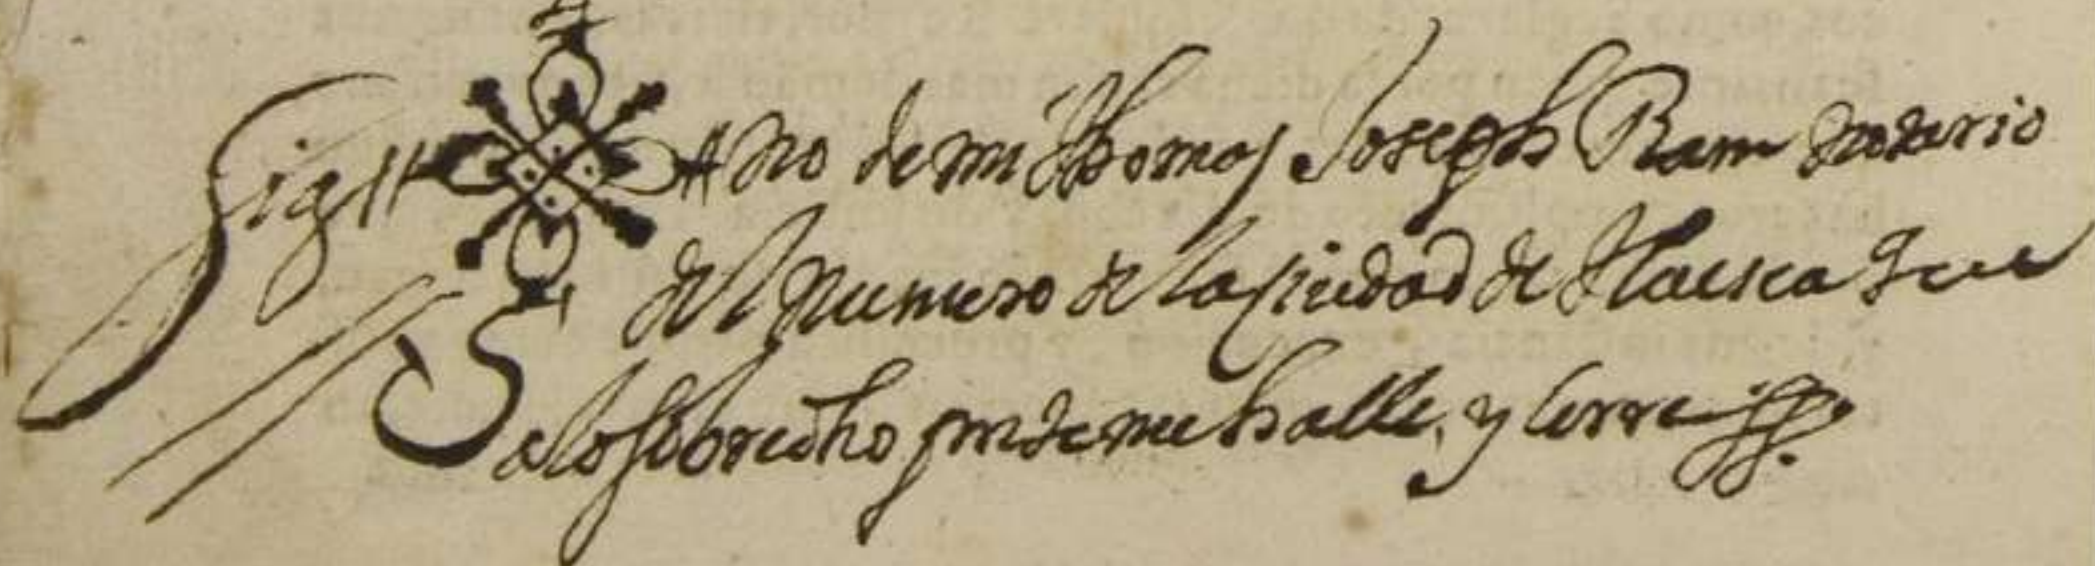 Sig no de mi Thomas Joseph Ram notario
del Numero de la Ciudad de Huesca que
a lo sobredho pnte me halle, y cerre